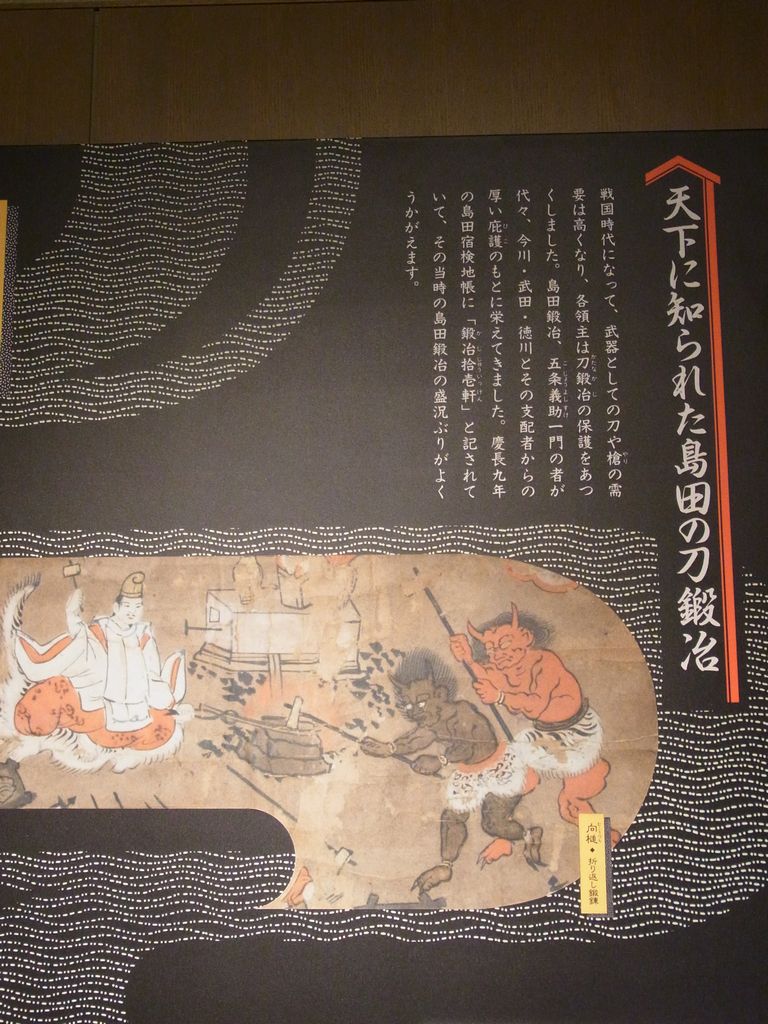 天下に知られた島田の刀鍛冶
戦国時代になって、武器としての刀や槍の需
要は高くなり、各領主は刀鍛冶の保護をあつ
くしました。島田鍛冶、五条義助一門の者が
代々、今川・武田・徳川とその支配者からの
厚い庇護のもとに栄えてきました。慶長九年
の島田宿検地帳に「鍛冶拾壱軒」と記されて
いて、その当時の島田鍛冶の盛況ぶりがよく
うかがえます。
向槌◆折り返し鍛錬